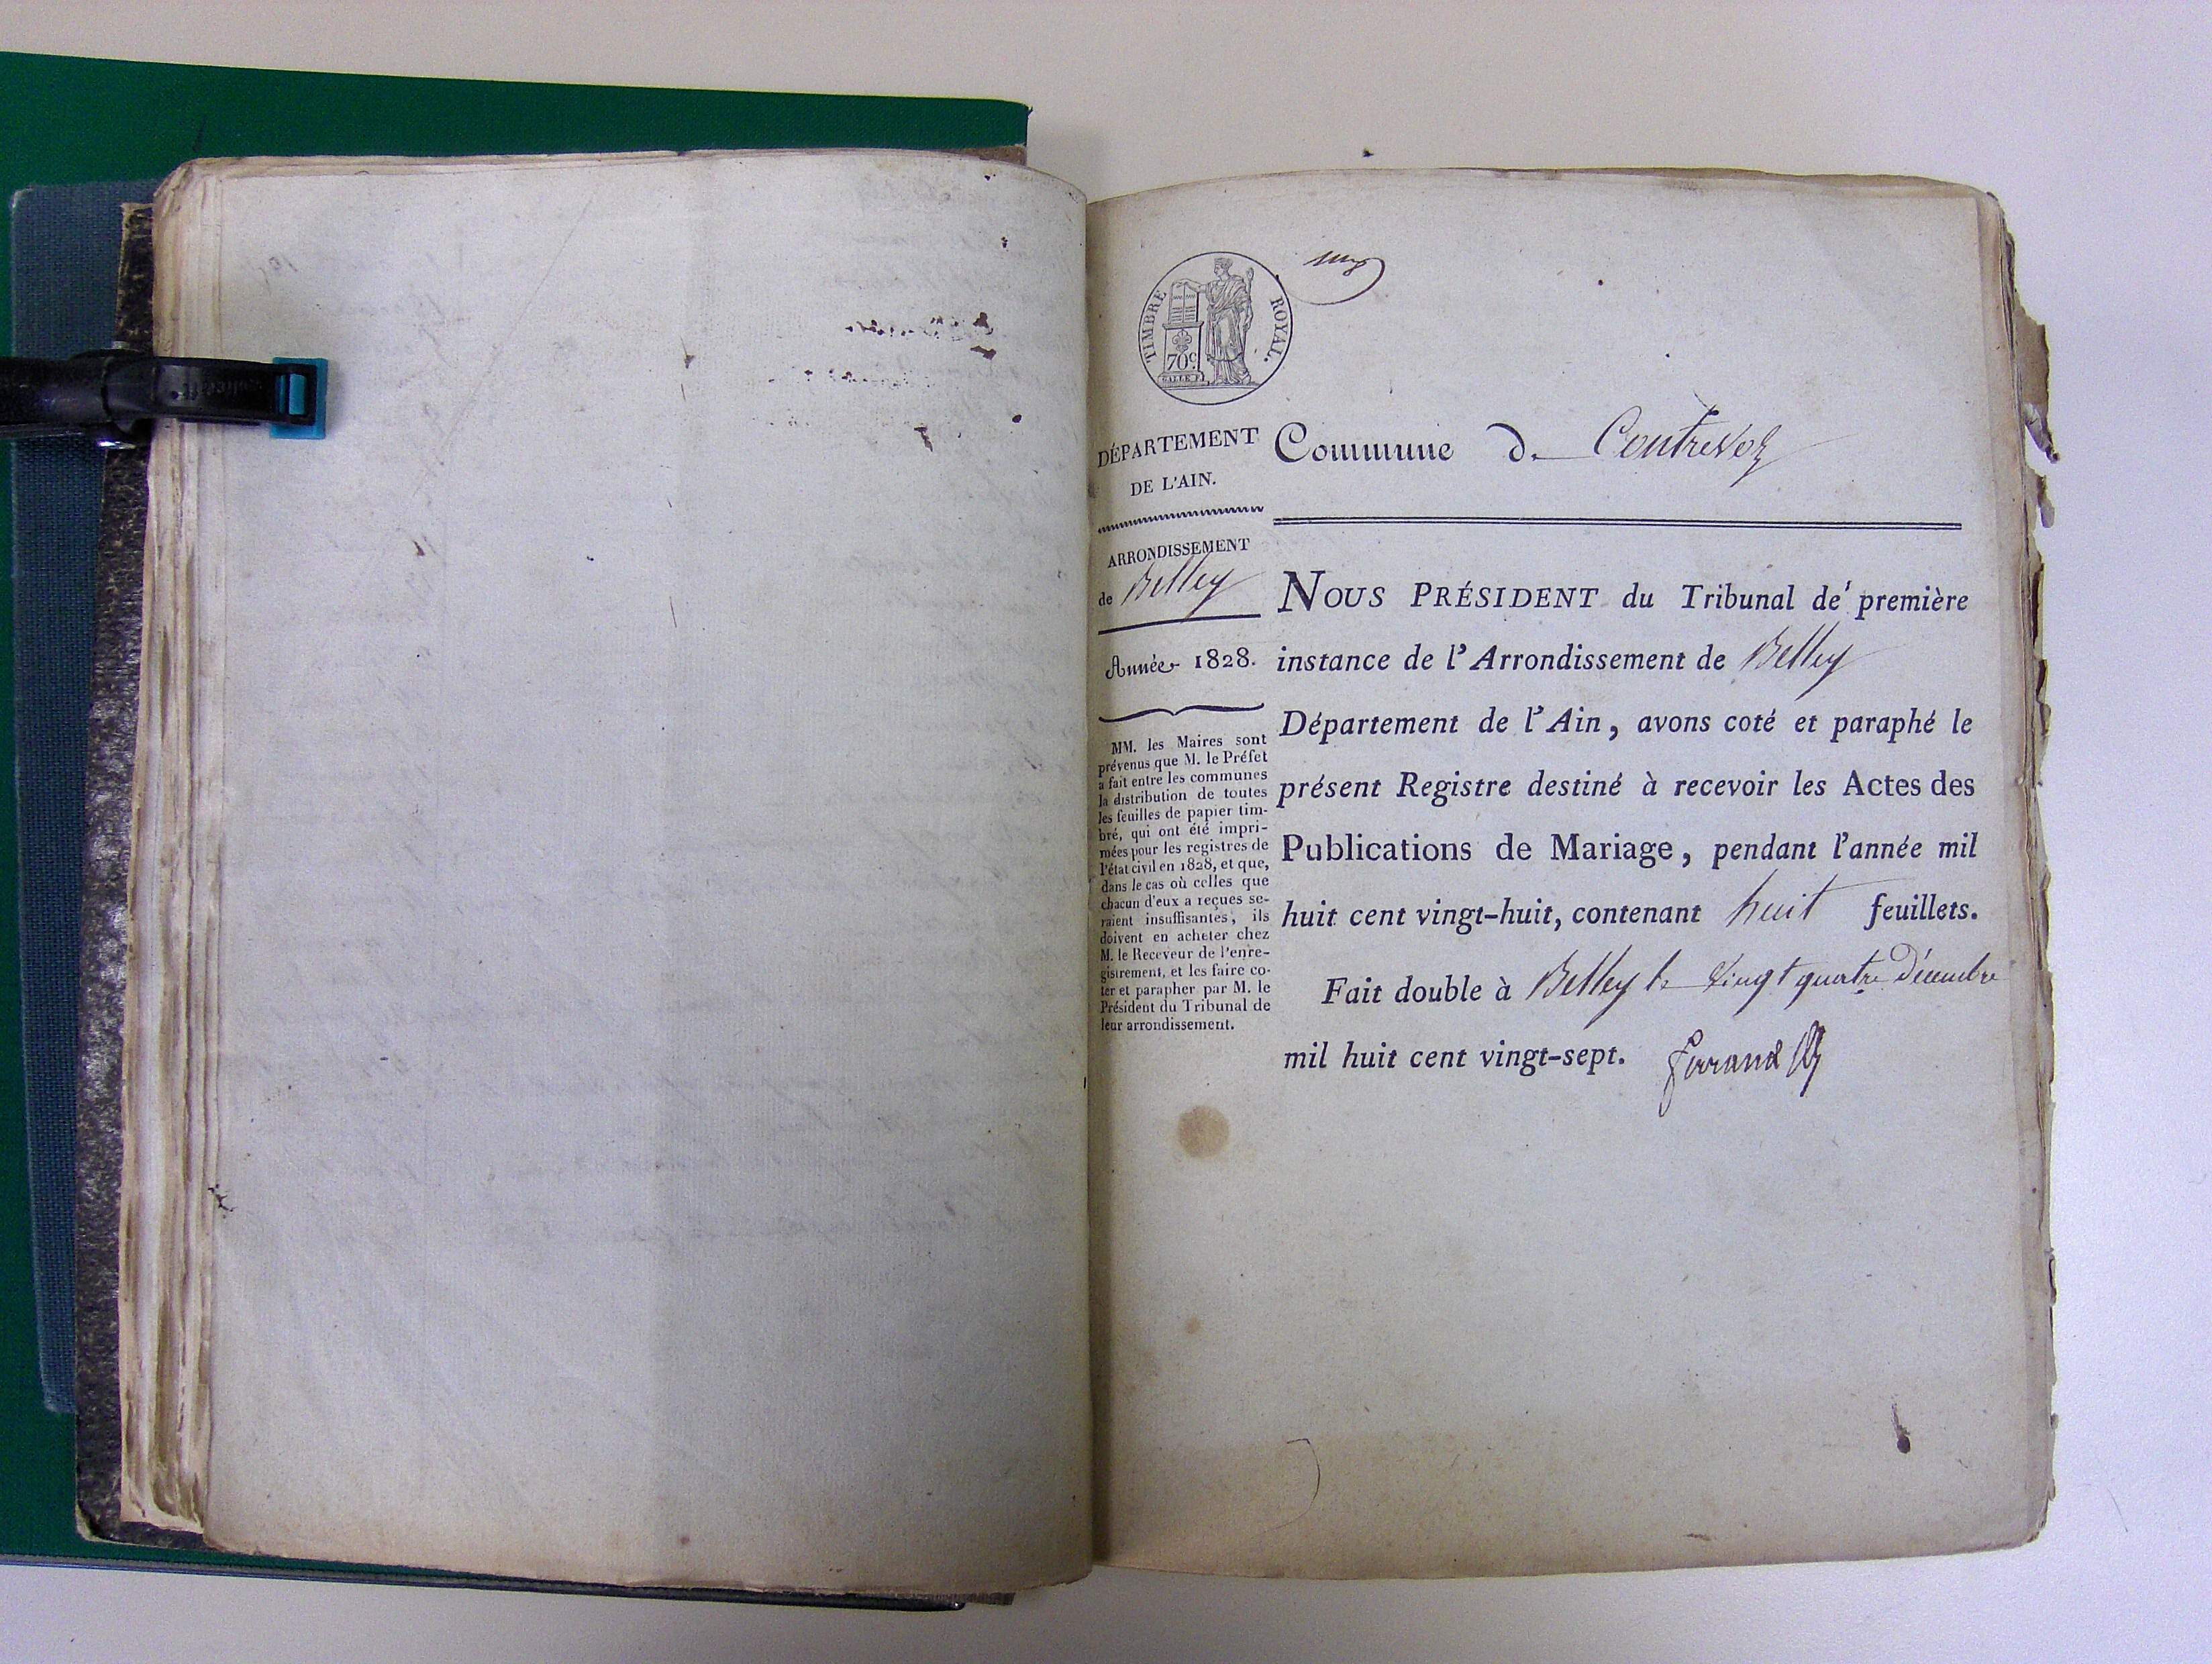 TIMBRE ROYAL.
70c.
DÉPARTEMENT
DE L'AIN.
ARRONDISSEMENT
de Belley
Année 1828.
MM. les Maires sont
prévenus que M. le Préfet
a fait entre les communes
la distribution de toutes
les feuilles de papier tim-
bré, qui ont été impri-
mées pour les registres de
l'état civil en 1828, et que,
dans le cas où celles que
chacun d'eux a reçues se-
raient insuffisantes, ils
doivent en acheter chez
M. le Receveur de l'enre-
gistrement, et les faire co-
ter et parapher par M. le
Président du Tribunal de
leur arrondissement.
Commune d. Contrevoz
NOUS PRÉSIDENT du Tribunal de première
instance de l'Arrondissement de Belley
Département de l'Ain, avons coté et paraphé le
présent Registre destiné à recevoir les Actes des
Publications de Mariage, pendant l'année mil
huit cent vingt-huit, contenant huit feuillets.
Fait double à Belley le vingt quatre décembre
mil huit cent vingt-sept.